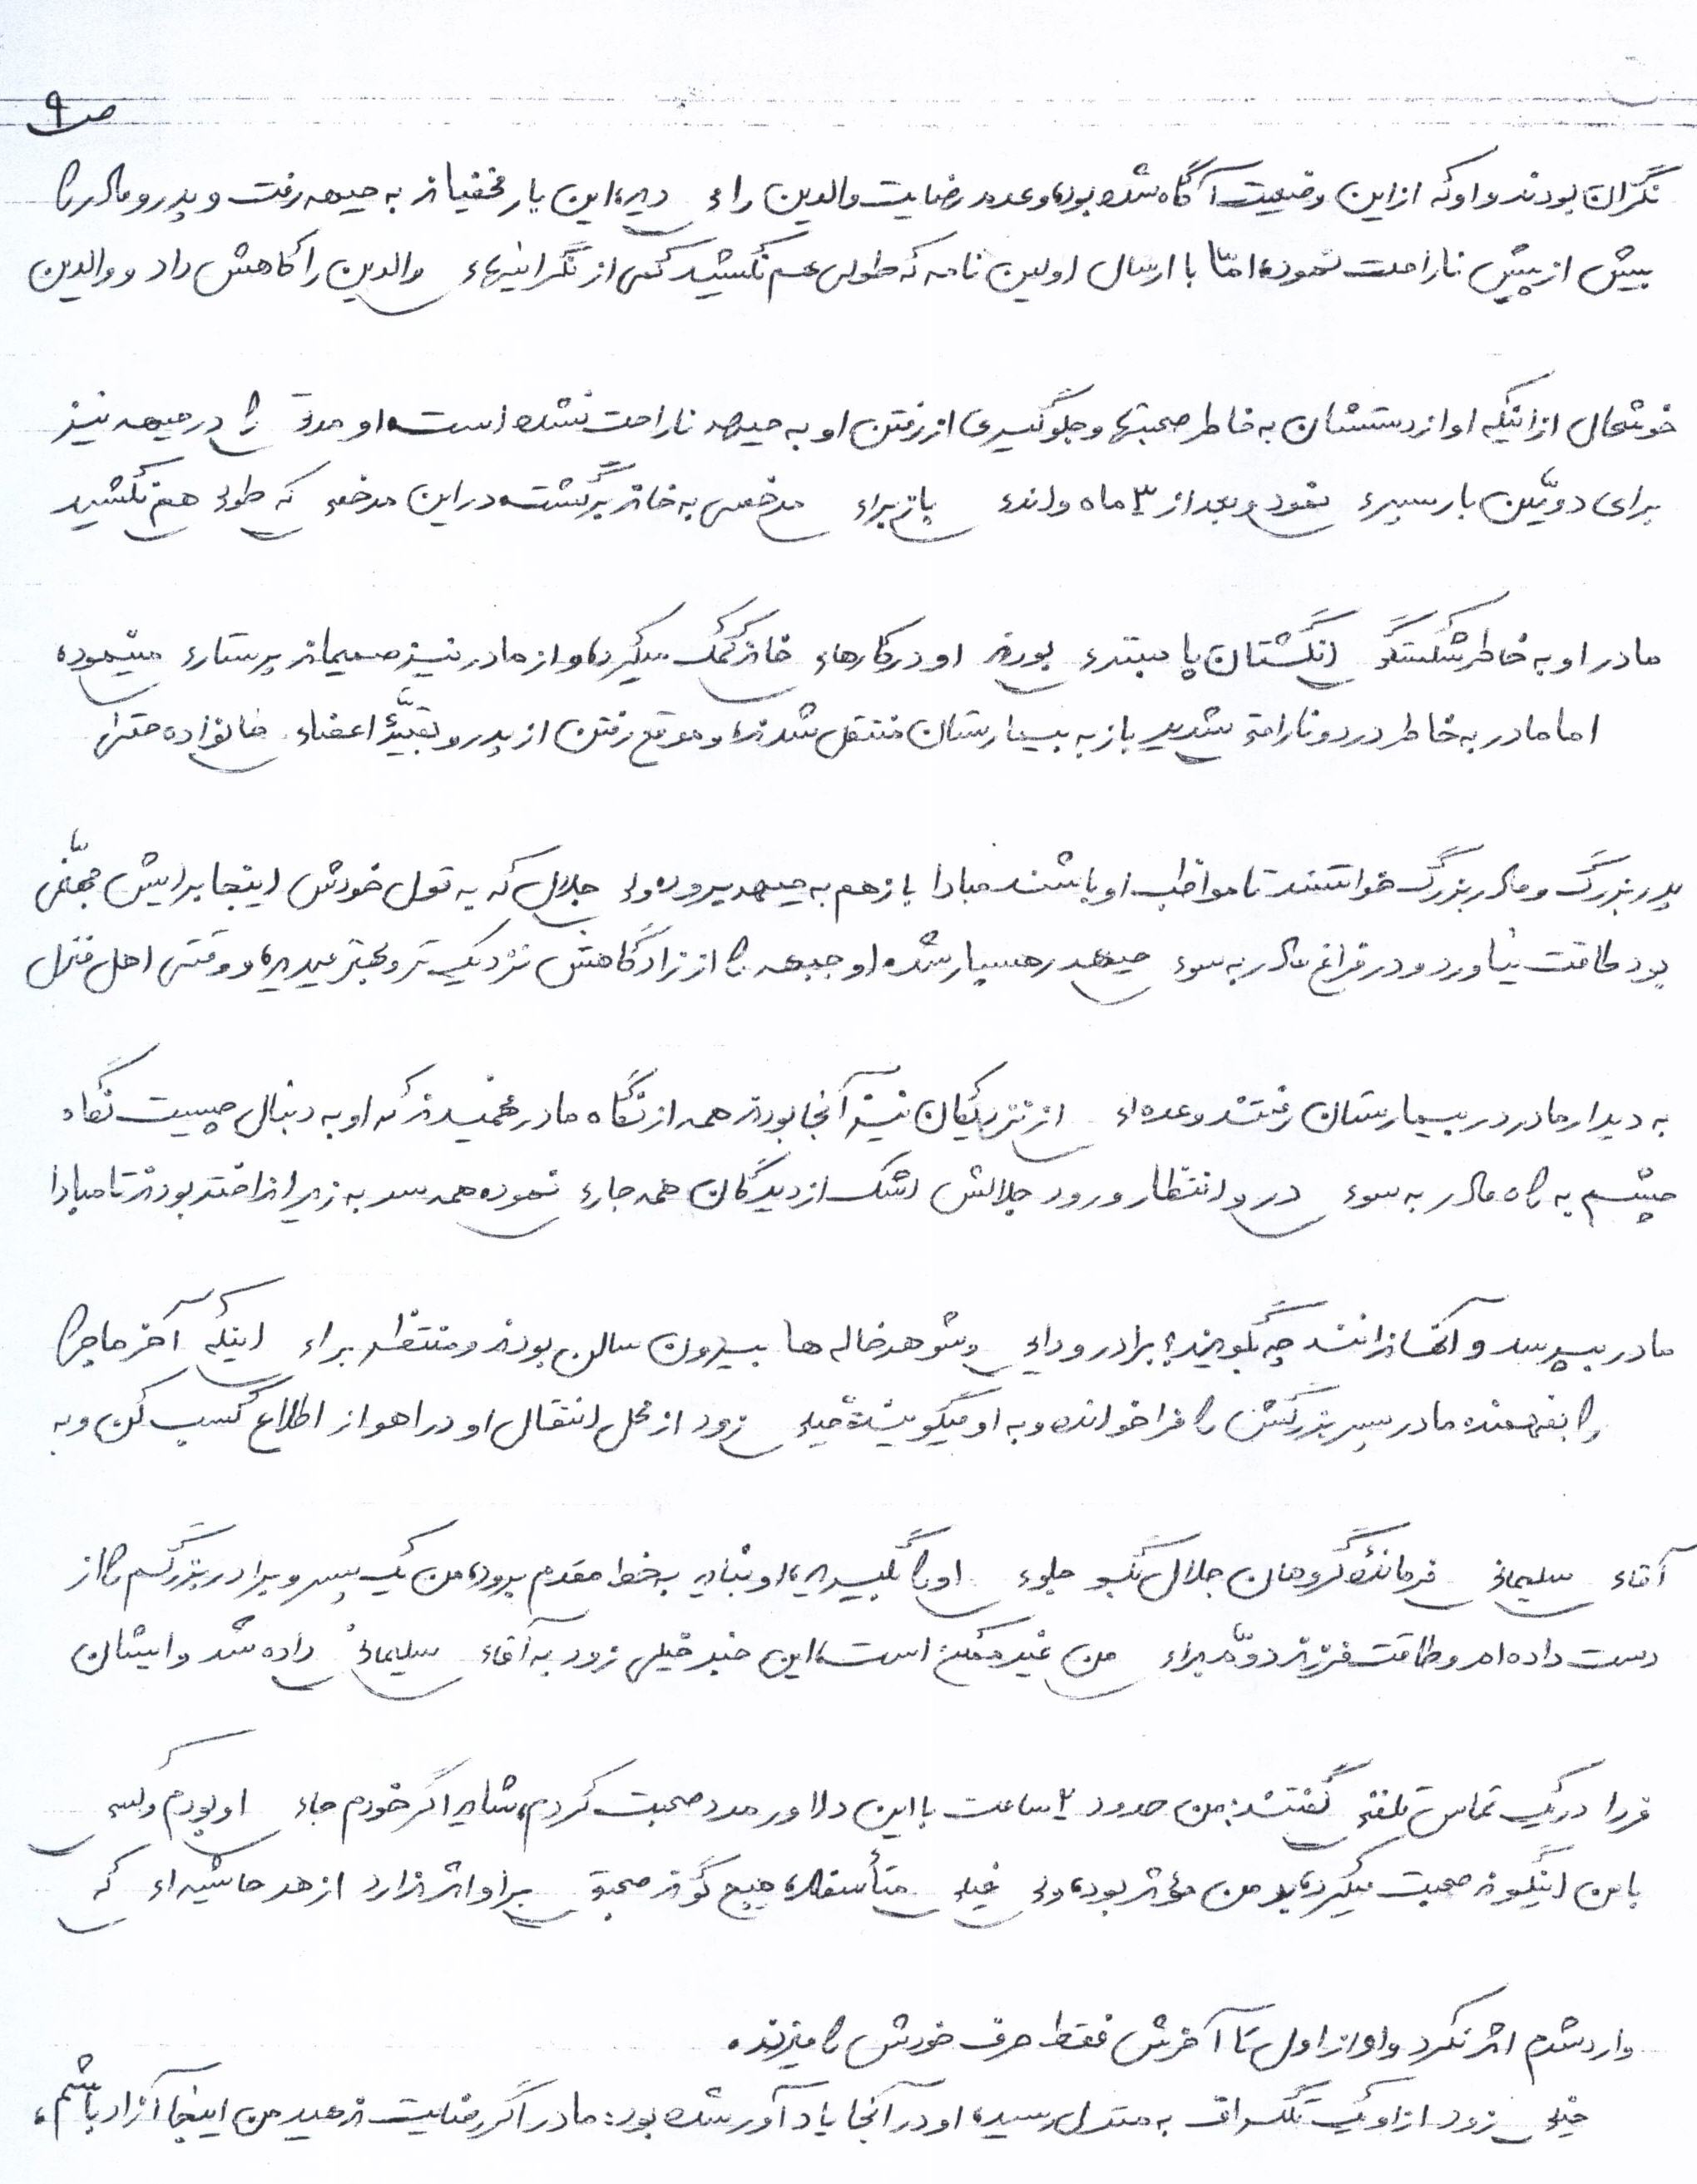 ص۹
نگران بودند و او که از این وضعیت آگاه شده بود، و عدم رضایت والدین را می دید، این بار مخفیانه به جبهه رفت و پدر و مادر را
بیش از پیش ناراحت نمود، امّا با ارسال اولین نامه که طولی هم نکشید کمی از نگرانیهای والدین را کاهش داد و والدین
خوشحال از اینکه او از دستشان به خاطر صحبتها و جلوگیری از رفتن او به جبهه ناراحت نشده است، او مدتی را در جبهه نیز
برای دوّمین بار سپری نمود و بعد از ۳ ماه و اندی باز برای مرخصی به خانه برگشت، در این مرخصی که طولی هم نکشید
مادر او به خاطر شکستگی انگشتان پا بستری بودند او در کارهای خانه کمک میکرد، و از مادر نیز صمیمانه پرستاری مینمود،
اما مادر به خاطر درد و ناراحتی شدید باز به بیمارستان منتقل شدند، و موقع رفتن از پدر و بقیّۀ اعضای خانواده حتی
پدربزرگ و مادربزرگ خواستند تا مواظب او باشند مبادا باز هم به جبهه برود، ولی جلال که به قول خودش اینجا برایش جهنّمی
بود طاقت نیاورد و در فراغ مادر به سوی جبهه رهسپار شد، او جبهه را از زادگاهش نزدیک تر و بهتر میدید، و وقتی اهل منزل
به دیدار مادر در بیمارستان رفتند و عده ای از نزدیکان نیز آنجا بودند همه از نگاه مادر فهمیدند که او به دنبال چیست نگاه
چشم به راه مادر به سوی در و انتظار ورود جلالش اشک از دیدگان همه جاری نموده همه سر به زیر انداخته بودند تا مبادا
مادر بپرسد و آنها ندانند چه بگویند، برادر و دایی و شوهر خاله ها بیرون سالن بودند و منتظر برای اینکه آخر ماجرا
را بفهمند، مادر پسر بزرگش را فرا خوانده و به او میگویند خیلی زود از محل انتقال او در اهواز اطلاع کسب کن و به
آقای سلیمانی فرمانده گروهان جلال بگو جلوی او را بگیرید، او نباید به خط مقدم برود، من یک پسر و برادر بزرگم را از
دست داده ام و طاقت فرزند دوّم برای من غیر ممکن است، این خبر خیلی زود به آقای سلیمانی داده شد و ایشان
فردا در یک تماس تلفنی گفتند: من حدود ۲ ساعت با این دلاور مرد صحبت کردم، شاید اگر خودم جای او بودم و کسی
با من اینگونه صحبت میکرد، بر من مؤثر بود، ولی خیلی متأسفم، هیچ گونه صحبتی بر او اثر ندارد از هر حاشیه ای که
وارد شدم اثر نکرد و او از اول تا آخرش فقط حرف خودش را میزند.
خیلی زود از او یک تلگراف به منزل رسید، او در آنجا یادآور شده بود: مادر اگر رضایت ندهید من اینجا آزاد باشم،